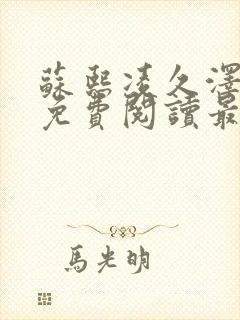 蘇熙凌久澤
免費閱讀最
馬光明